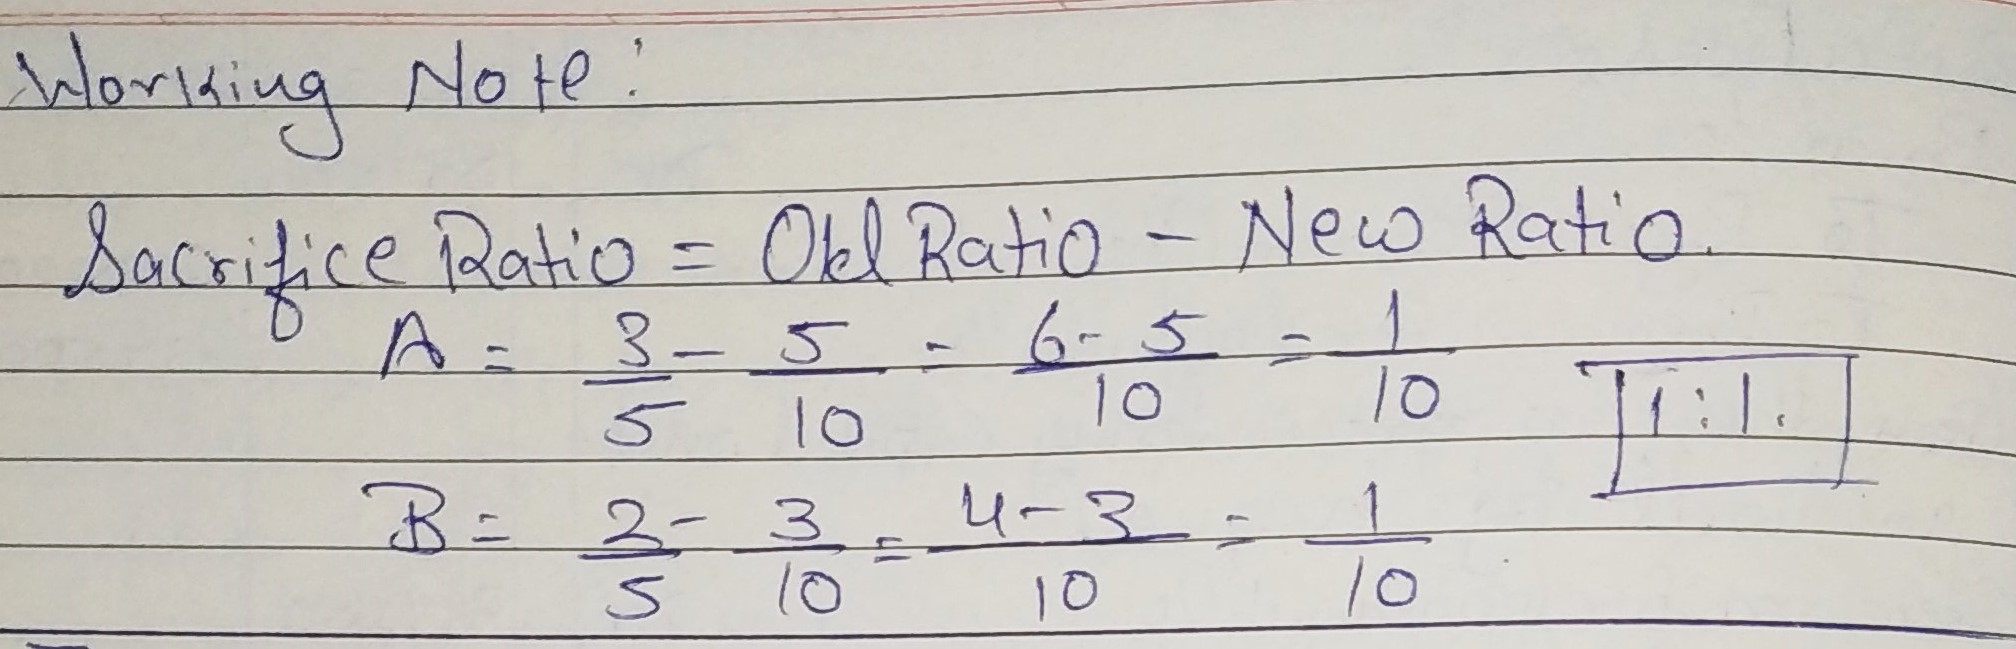 Working Note:
Sacrifice Ratio = Old Ratio - New Ratio.
A = 3/5 - 5/10 - 6-5/10 = 1/10
1:1.
B = 2/5 - 3/10 = 4-3/10 = 1/10